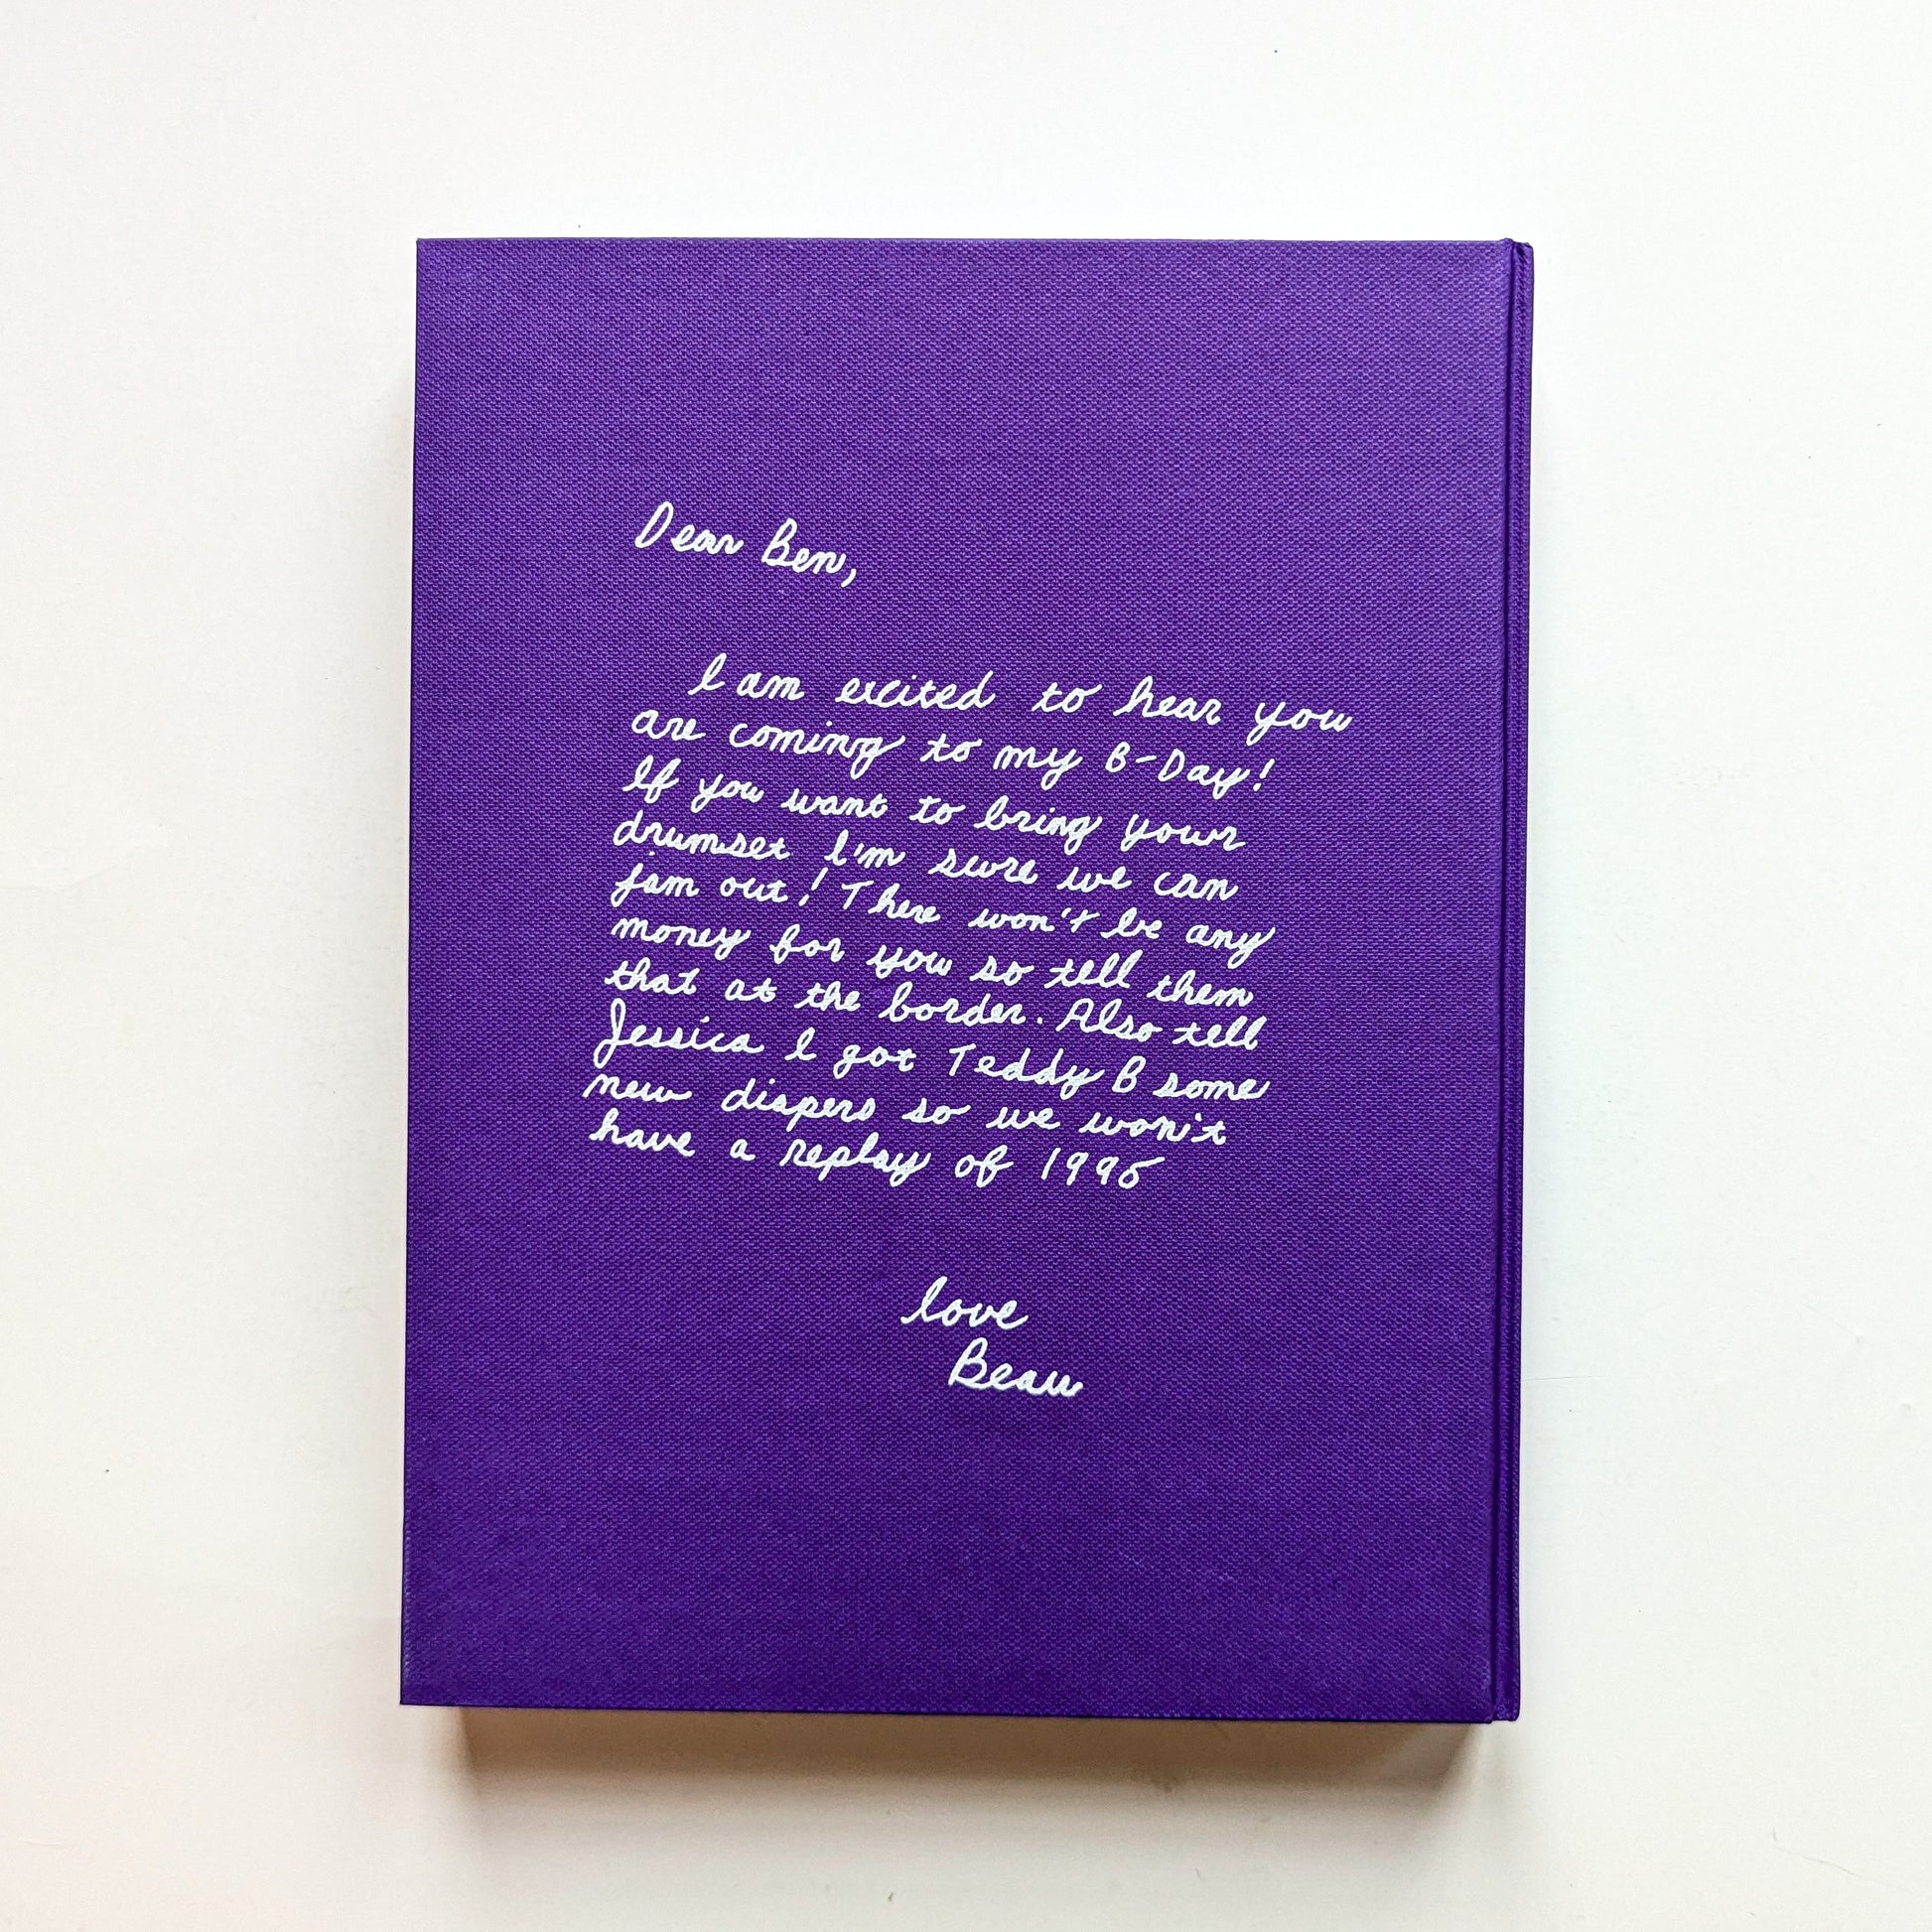 Dear Ben,
I am excited to hear you
are coming to my B-Day!
If you want to bring your
drumset I'm sure we can
jam out! There won't be any
money for you so tell them
that at the border. Also tell
Jessica I got Teddy B some
new dispers so we won't
have a replay of 1995
love
Beau